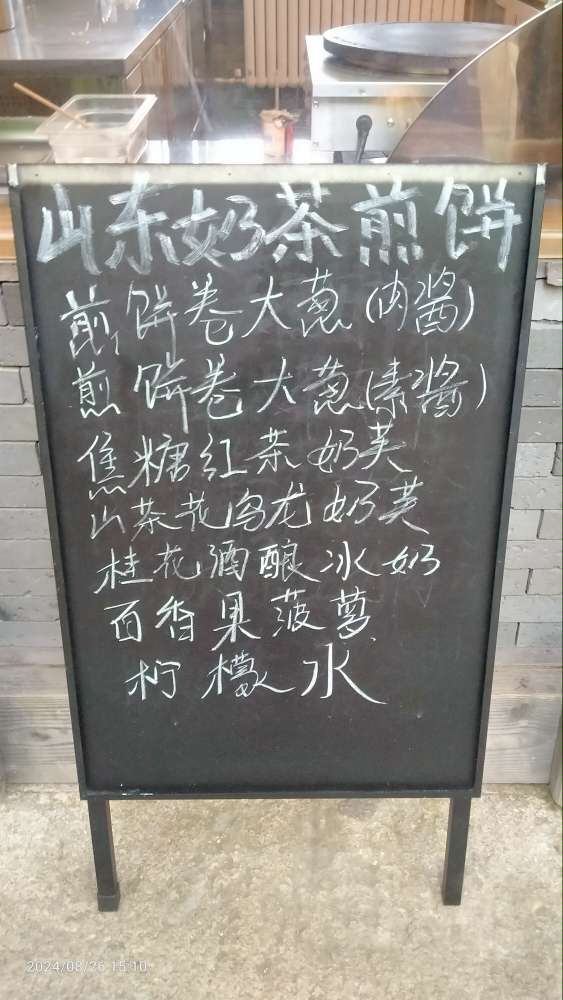 山东奶茶煎饼
煎饼卷大葱(肉酱)
煎饼卷大葱(素酱)
焦糖红茶奶芙
山茶花乌龙奶芙
桂花酒酿冰奶
百香果菠萝
柠檬水
2024/08/26 15:10